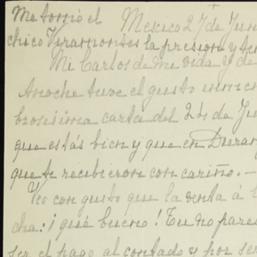 Me tomó el
chico Tiramontes la presion y
Mexico 27 de Jun
Mi Carlos de mi vida y de
Anoche tuve el gusto inmen
carta del 25 de Ju
que estás bien y que en Duran
que te recibieron con cariño. —
Veo con gusto que la venta á
cha: ¡qué bueno! Tu no pare
ser el pago al contado ó por se